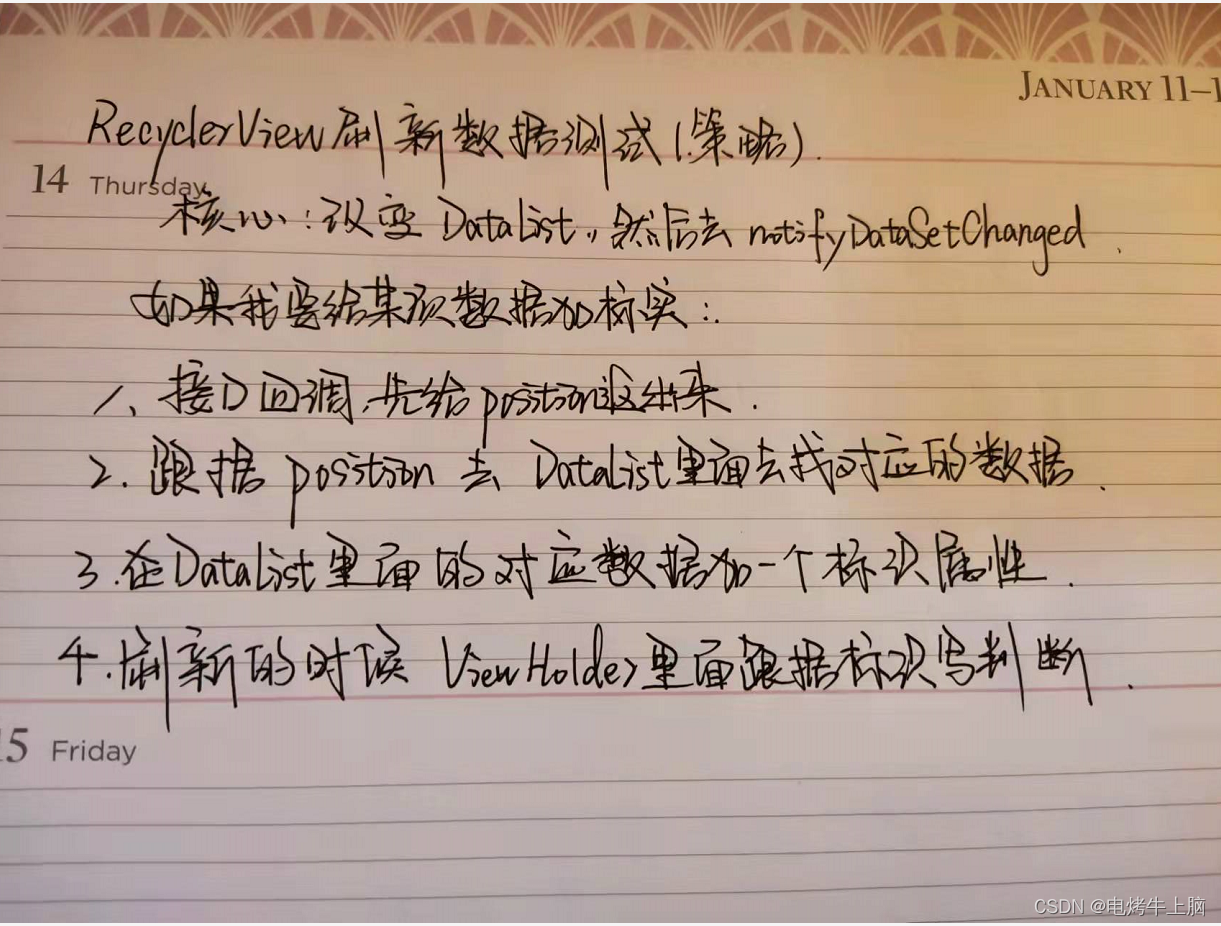 JANUARY 11–1
RecyclerView刷新数据测试(策略).
14 Thursday
核心:改变 DataList,,然后去 notifyDataSetChanged.
如果我要给某项数据加标实:.
1、接口回调,先给position返出来.
2. 跟据 position 去 DataList里面去找对应的数据.
3.在DataList里面的对应数据加一个标识属性.
4.刷新的时候 ViewHolder里面跟据标识写判断.
15 Friday
CSDN @电烤牛上脑